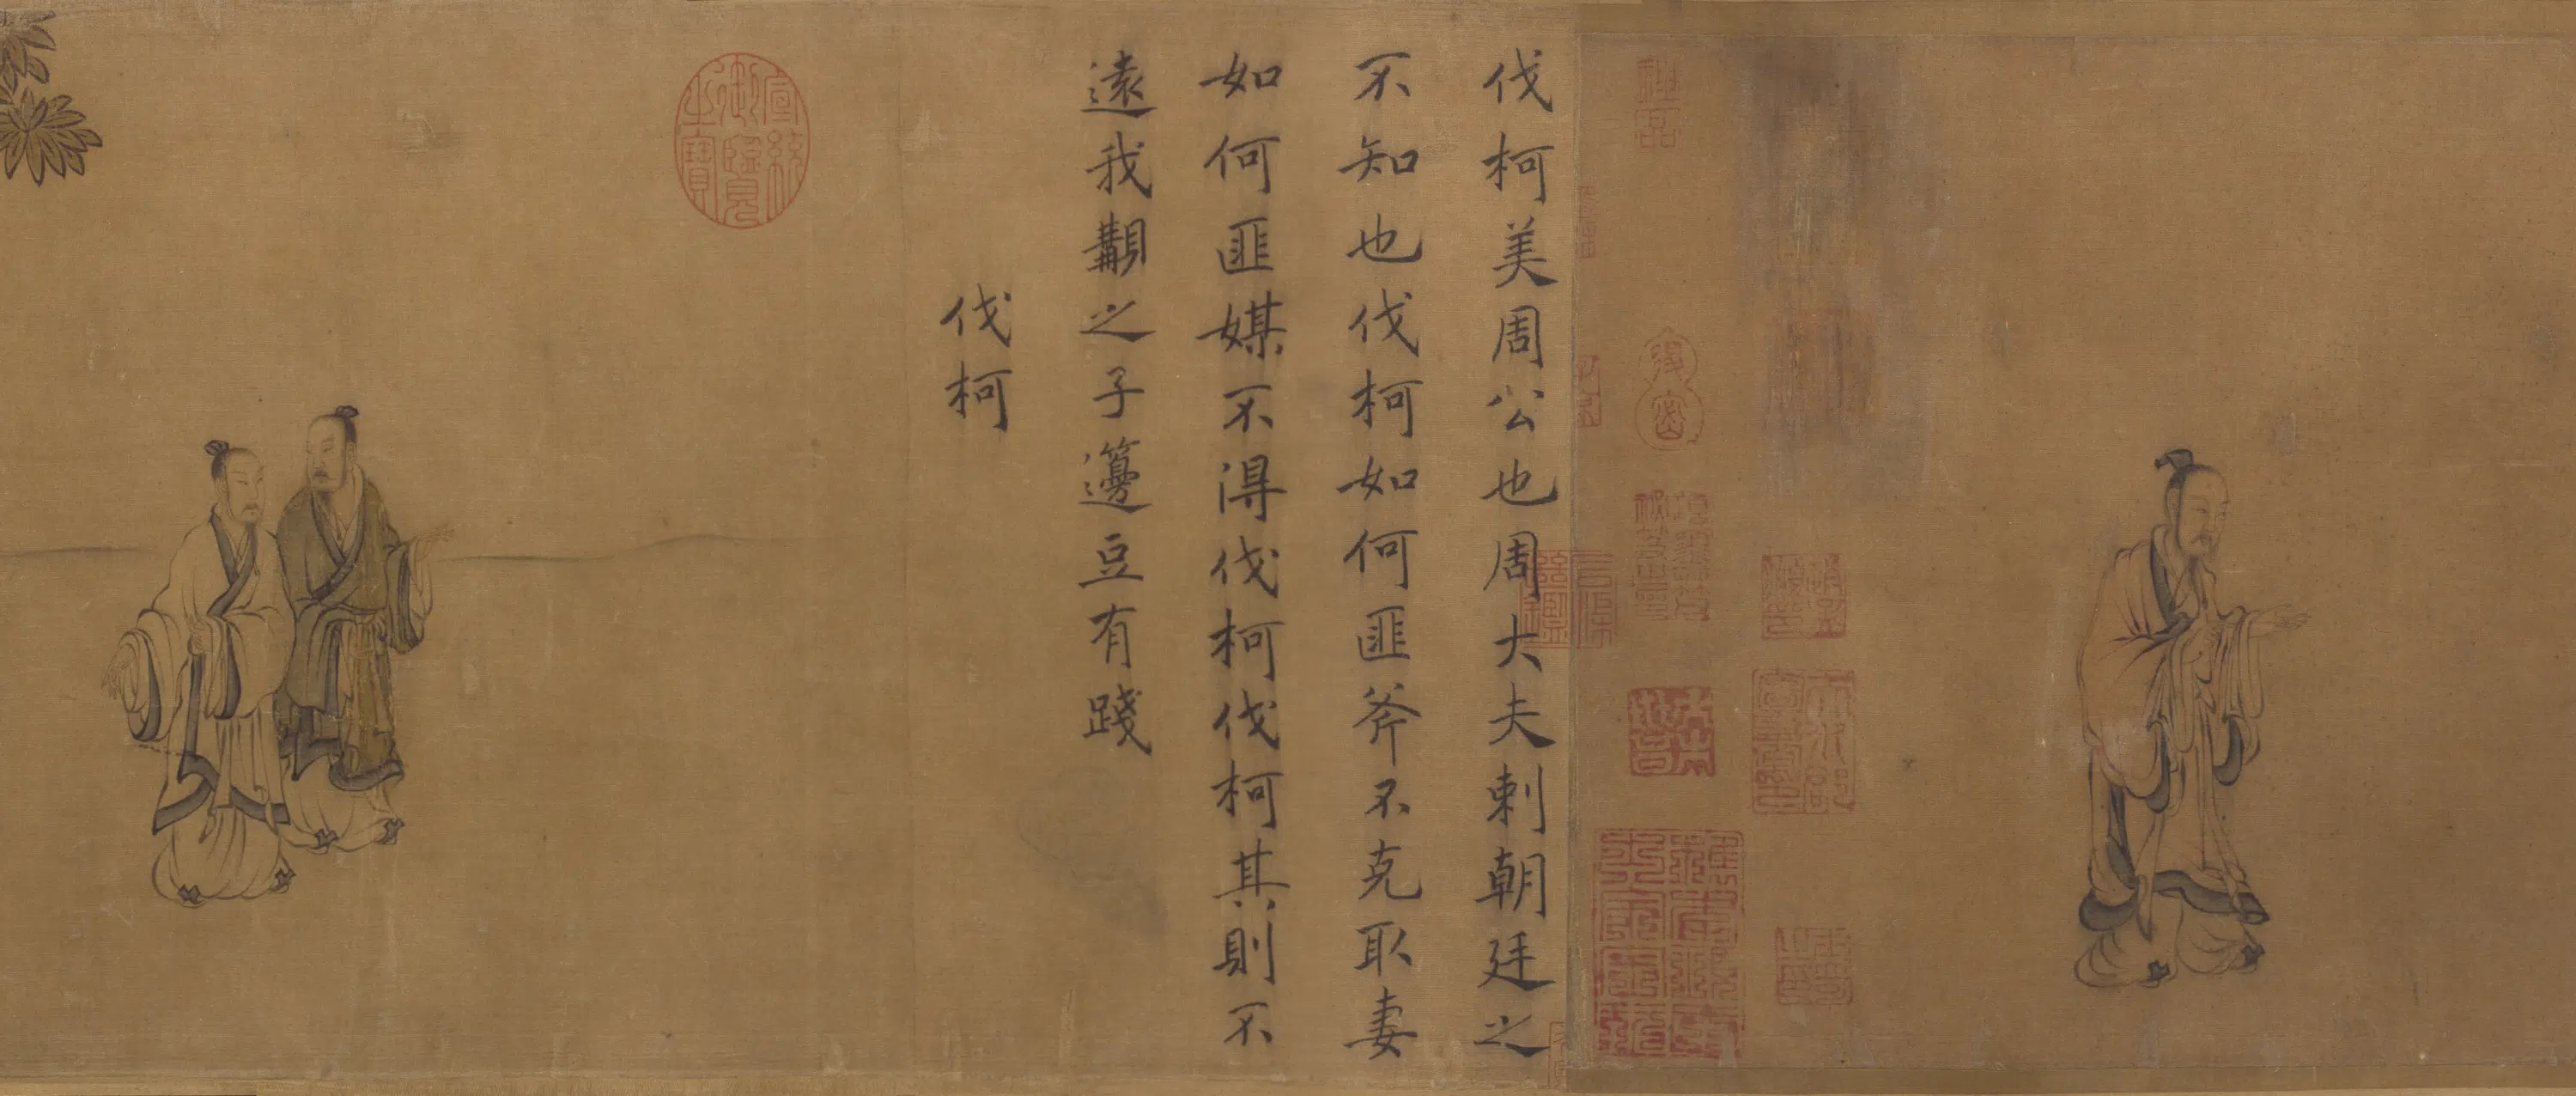 伐柯美周公也周大夫刺朝廷之
不知也伐柯如何匪斧不克取妻
如何匪媒不得伐柯伐柯其則不
遠我覯之子籩豆有踐
伐柯
宣統御覽之寶